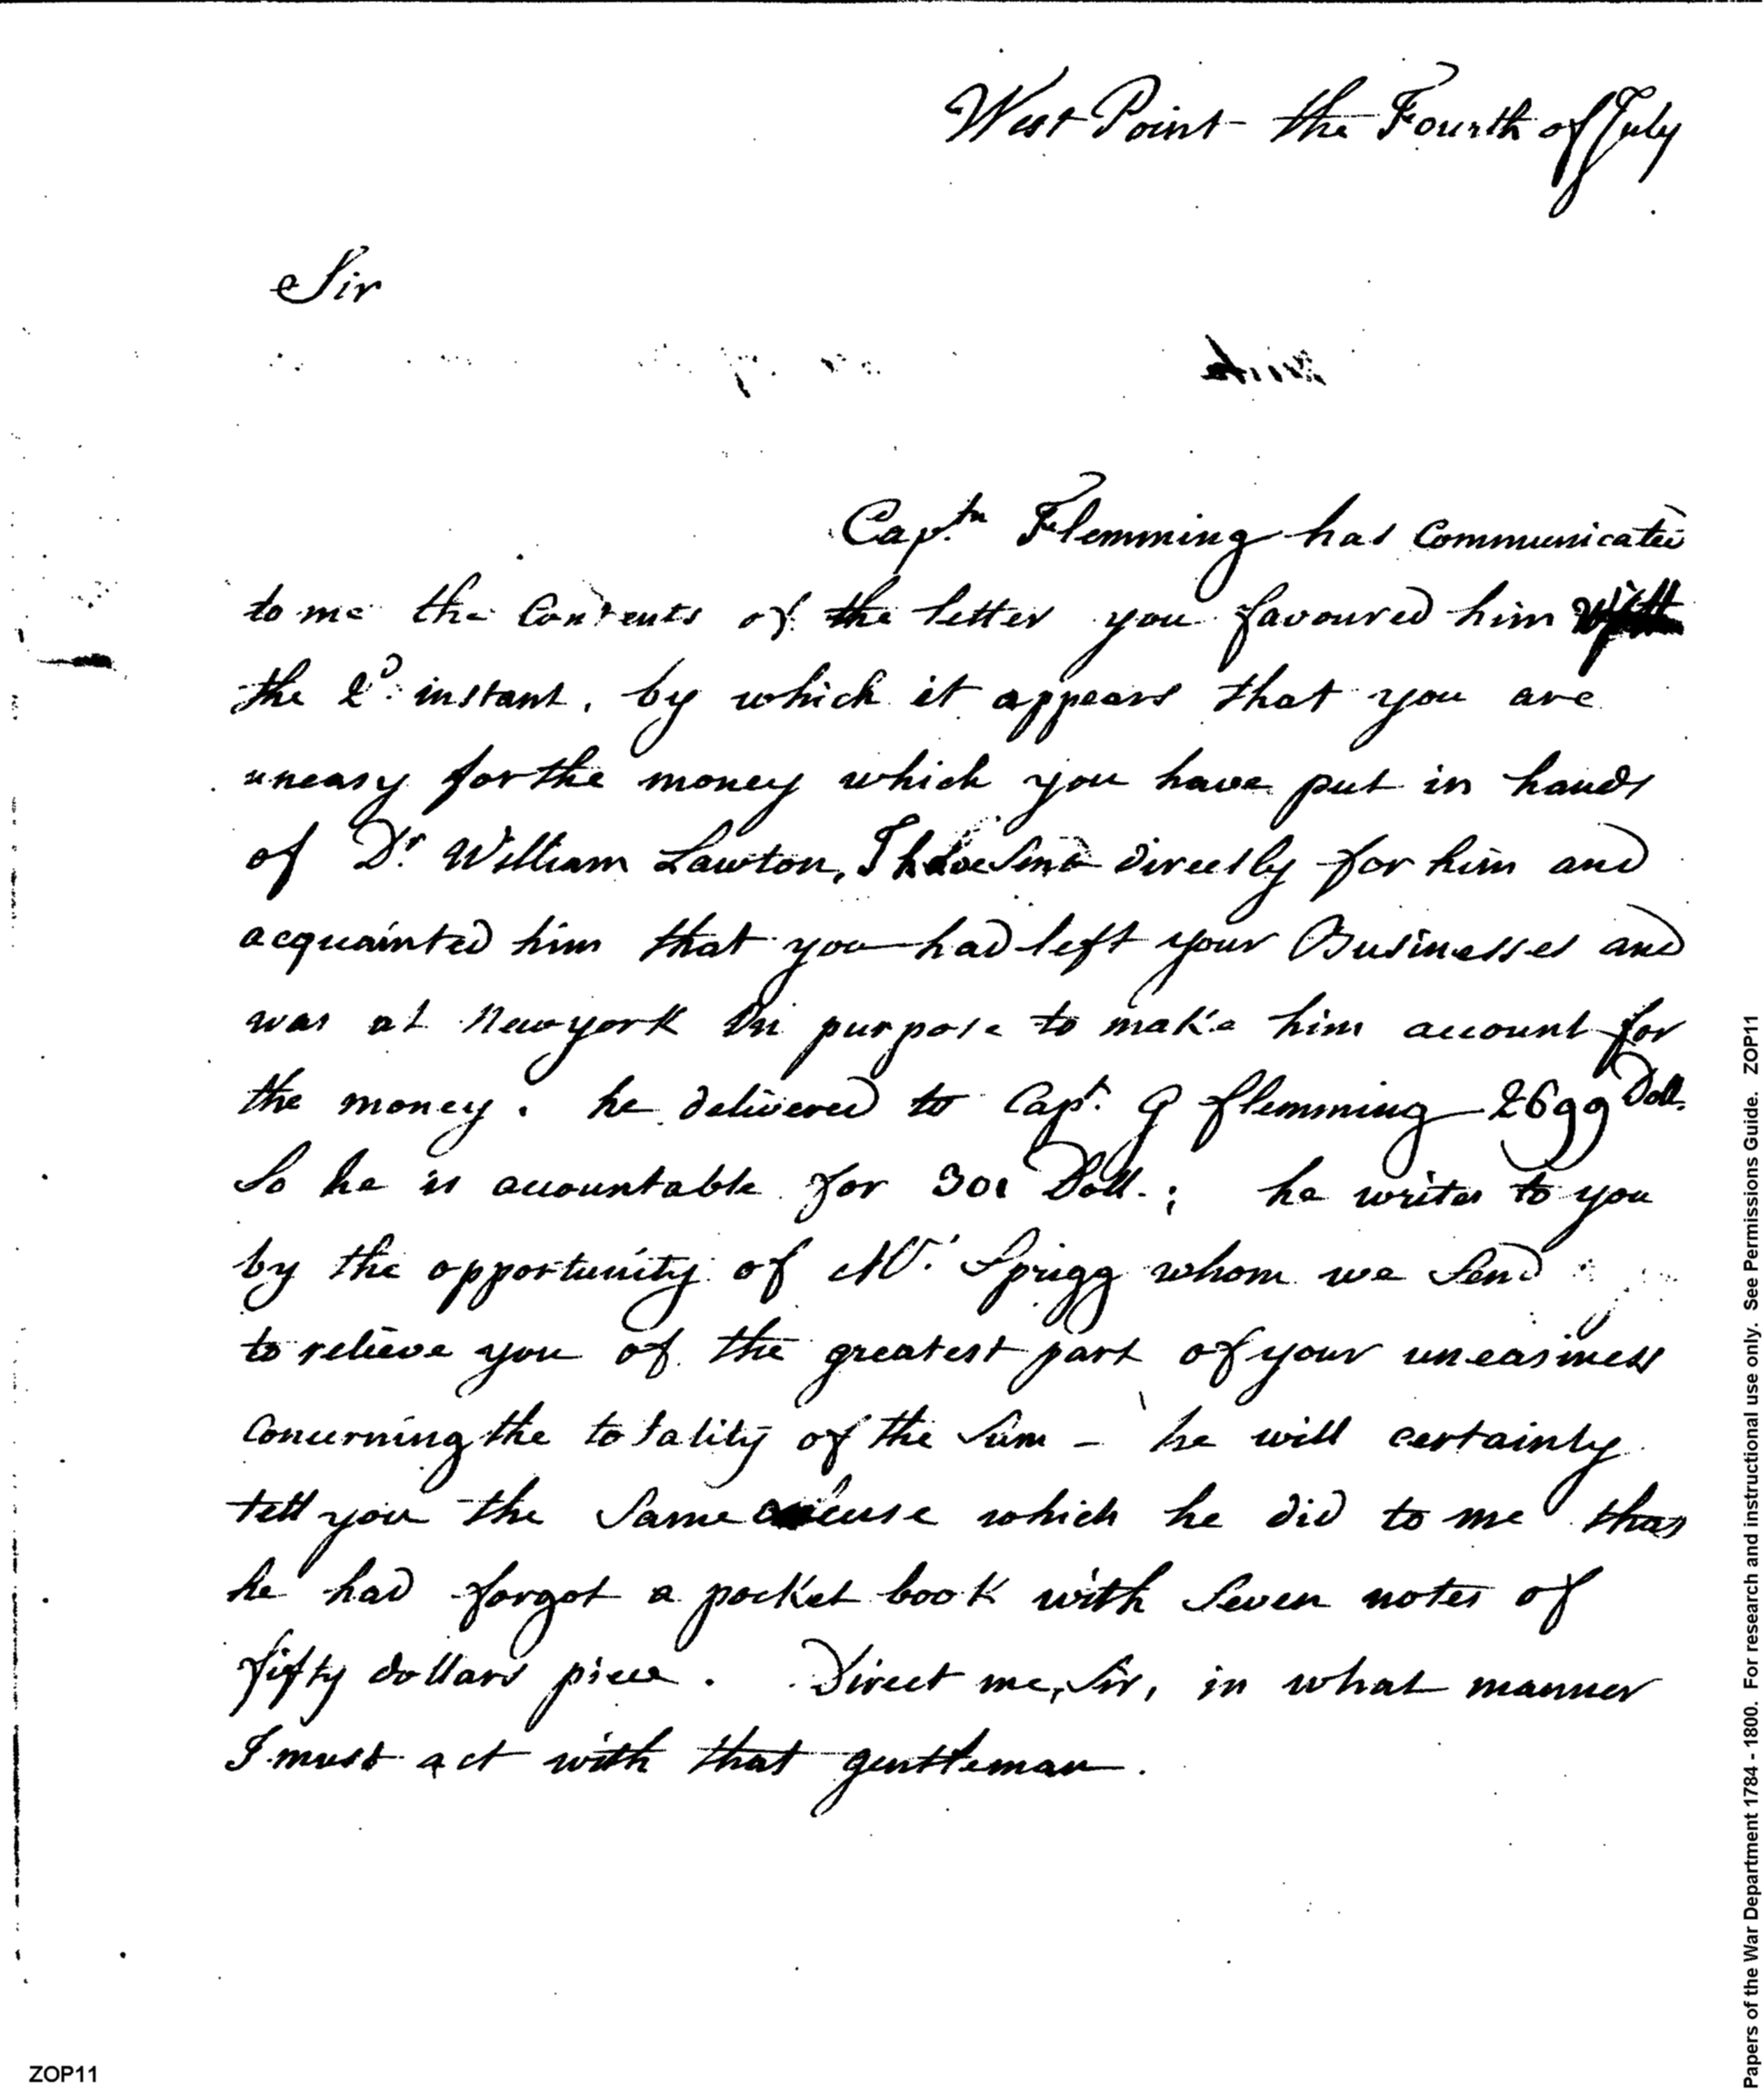 West Point the Fourth of July
Sir
Capt.n Flemming has Communicated
to me the Contents of the letter you favoured him with
the 2d. instant, by which it appears that you are
uneasy for the money which you have put in hands
of Dr. William Lawton, I have sent directly for him and
acquainted him that you had left your Businesses and
was at Newyork on purpose to make him account for
the money. he delivered to Capt. G flemming 2699 Doll.
So he is accountable for 301 Doll.; he writes to you
by the opportunity of Mr. Sprigg whom we send
to relieve you of the greatest part of your uneasiness
Concerning the totality of the Sum - he will certainly
tell you the Same excuse which he did to me that
he had forgot a pocket book with Seven notes of
fifty dollars piece. Direct me, Sir, in what manner
I must act with that gentleman.
Papers of the War Department 1784 - 1800. For research and instructional use only. See Permissions Guide. ZOP11
ZOP11